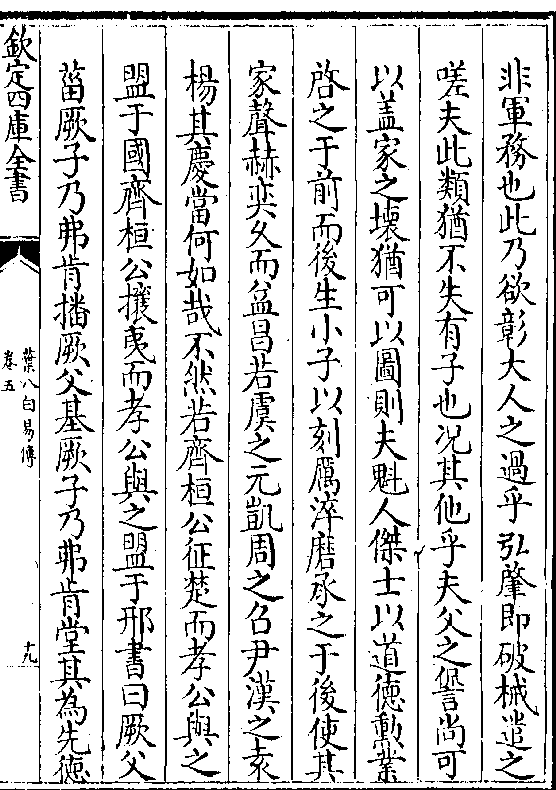 非軍務也此乃欲彰大人之過乎弘肇即破械遣之
嗟夫此類猶不失有子也况其他乎夫父之愆尚可
以盖家之壊猶可以圖則夫魁人傑士以道德勲業
啓之于前而後生小子以刻厲淬磨承之于後使其
家聲赫奕久而益昌若虞之元凱周之召尹漢之袁
楊其慶當何如哉不然若齊桓公征楚而孝公與之
盟于國齊桓公攘夷而孝公與之盟于邢書曰厥父
菑厥子乃弗肯播厥父基厥子乃弗肯堂其為先德
欽定四庫全書
葉八白易傳
卷五
十九